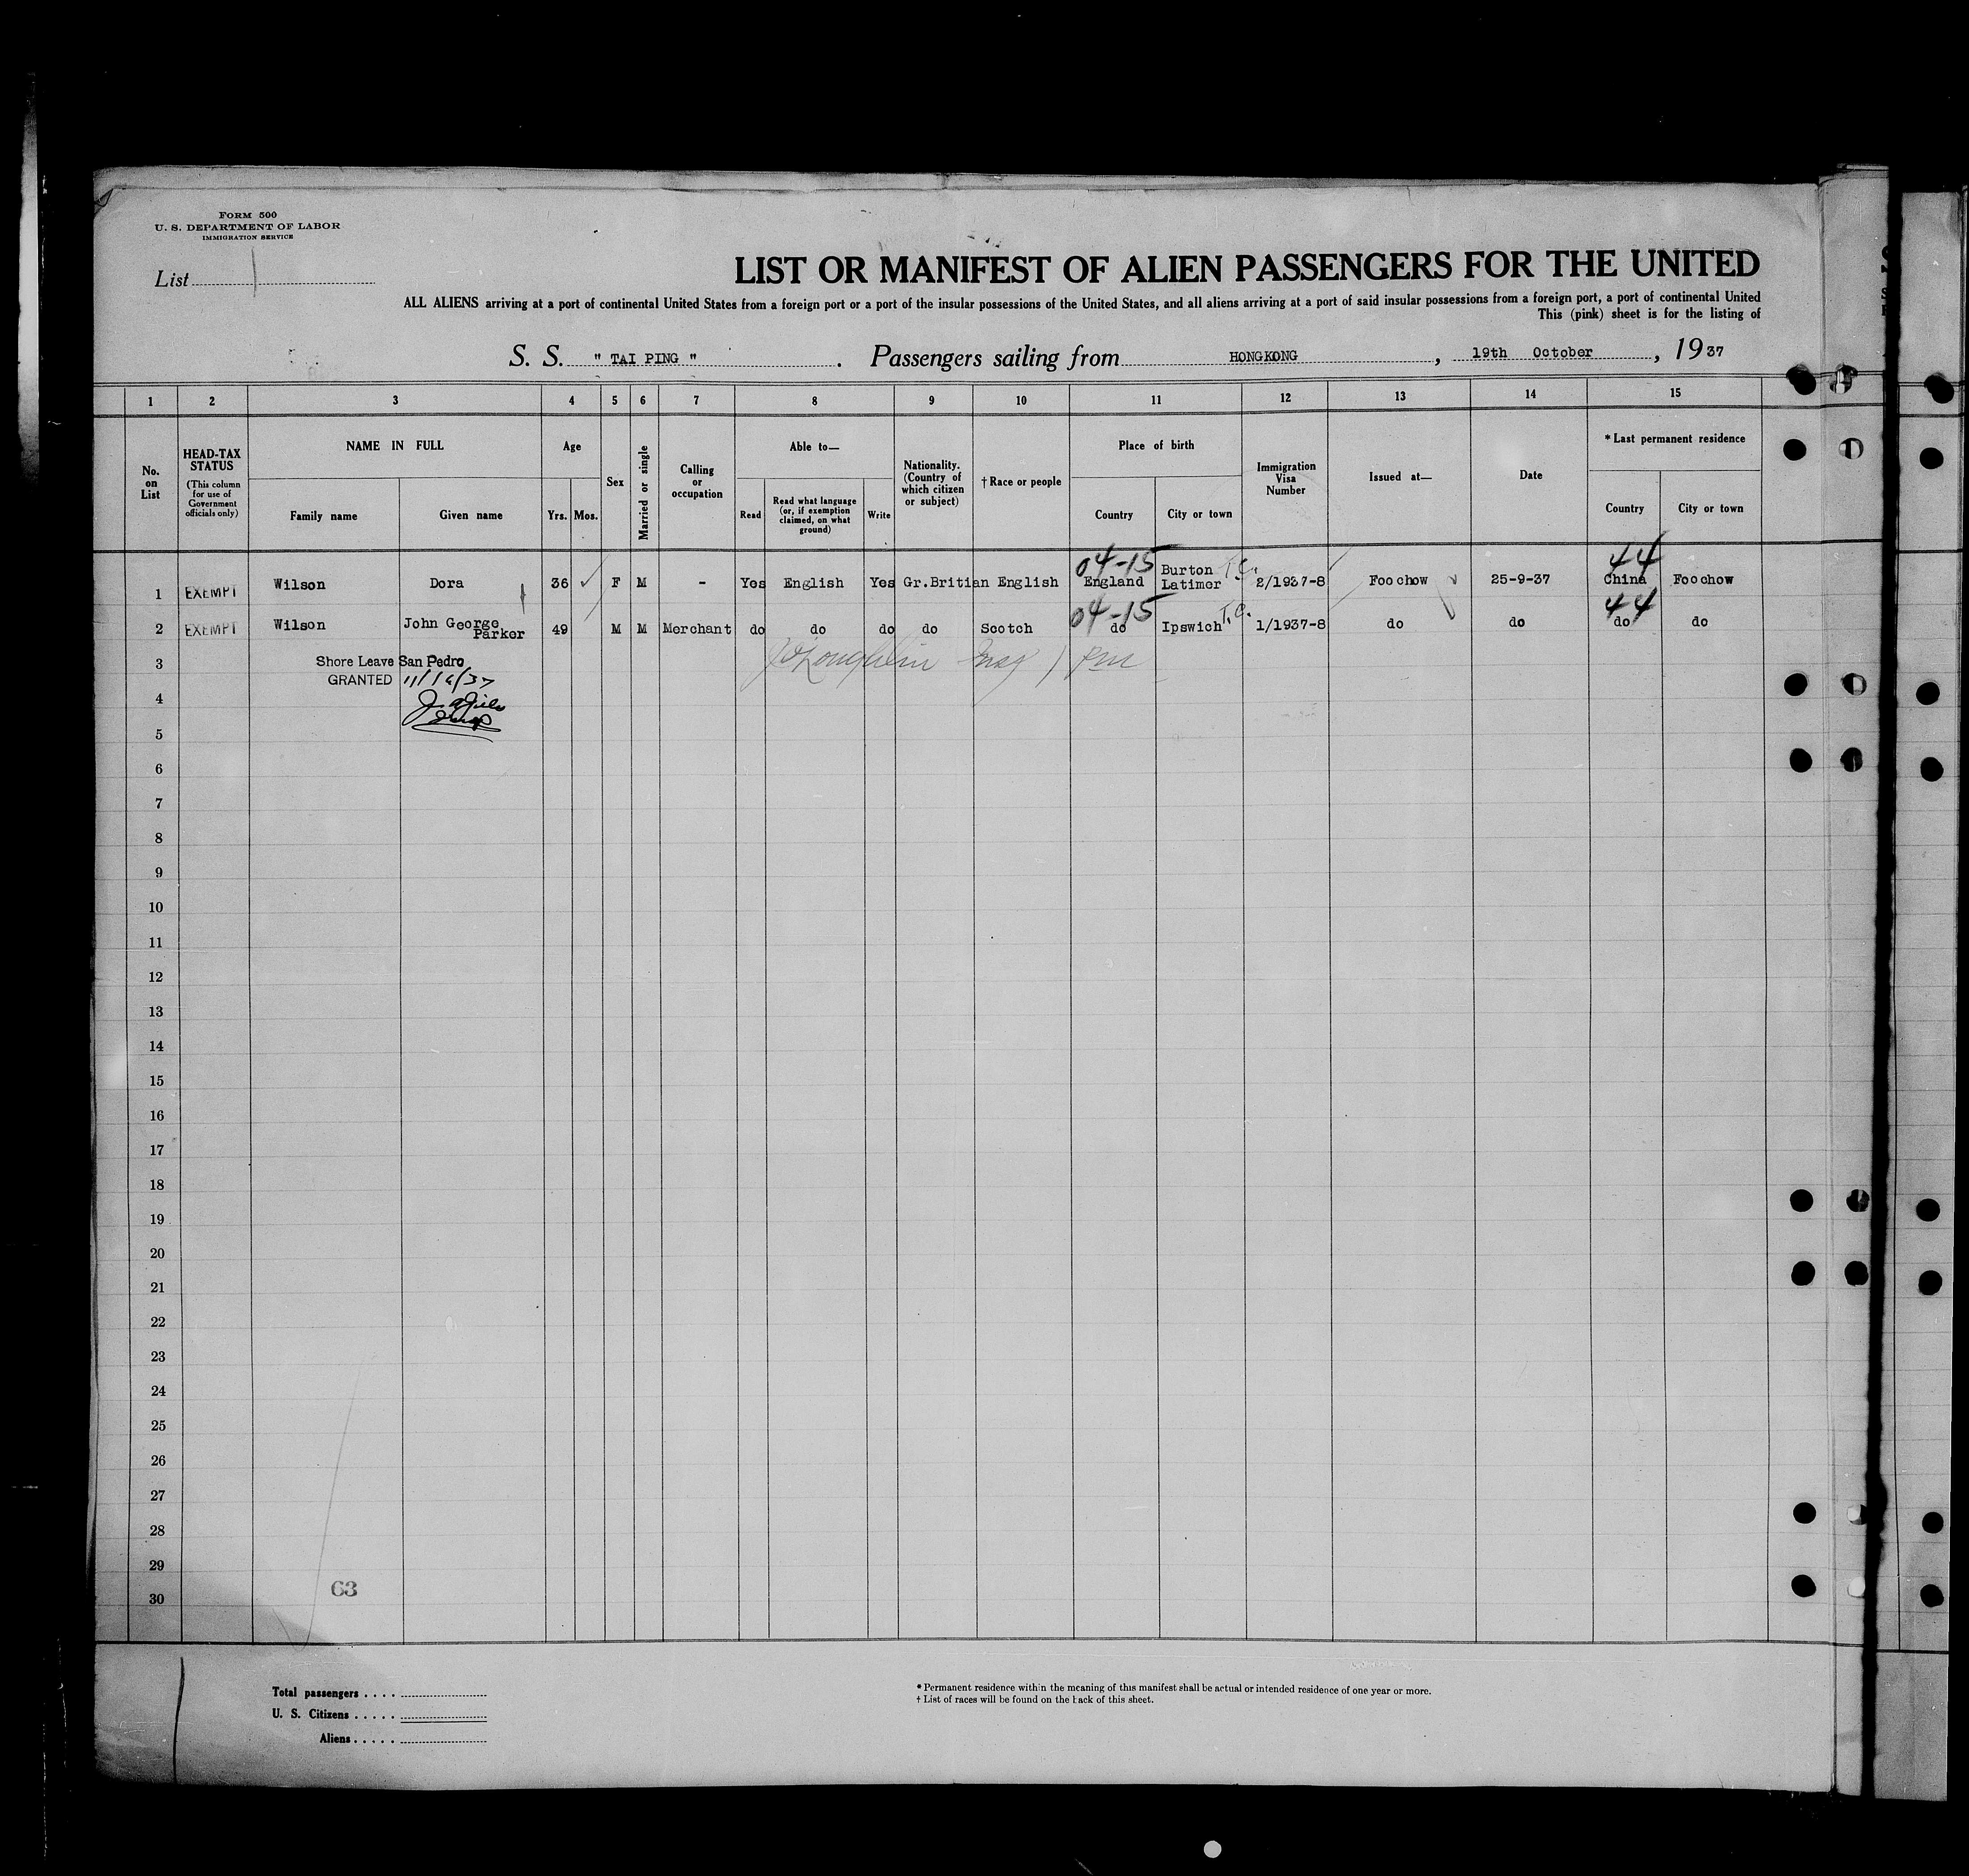 FORM 500
U. S. DEPARTMENT OF LABOR
IMMIGRATION SERVICE
List
LIST OR MANIFEST OF ALIEN PASSENGERS FOR THE UNITED
ALL ALIENS arriving at a port of continental United States from a foreign port or a port of the insular possessions of the United States, and all aliens arriving at a port of said insular possessions from a foreign port, a port of continental United
This (pink) sheet is for the listing of
S. S. " TAI PING ". Passengers sailing from HONGKONG, 19th October, 1937
1 2 3 4 5 6 7 8 9 10 11 12 13 14 15
No. on List
HEAD-TAX STATUS
(This column for use of Government officials only)
NAME IN FULL
Family name Given name
Age
Yrs. Mos.
Sex
Married or single
Calling or occupation
Able to—
Read
Read what language (or, if exemption claimed, on what ground)
Write
Nationality. (Country of which citizen or subject)
† Race or people
Place of birth
Country City or town
Immigration Visa Number
Issued at—
Date
* Last permanent residence
Country City or town
04-15 44
1 EXEMPT Wilson Dora 36 F M - Yes English Yes Gr.Britian English England Burton Latimer T.C. 2/1937-8 Foochow 25-9-37 China Foochow
04-15 44
2 EXEMPT Wilson John George Parker 49 M M Merchant do do do do Scotch do Ipswich T.C. 1/1937-8 do do do do
3 Shore Leave San Pedro
GRANTED
4
5
6
7
8
9
10
11
12
13
14
15
16
17
18
19
20
21
22
23
24
25
26
27
28
29
63
30
Total passengers . . . .
U. S. Citizens . . . . .
Aliens . . . . .
* Permanent residence within the meaning of this manifest shall be actual or intended residence of one year or more.
† List of races will be found on the back of this sheet.